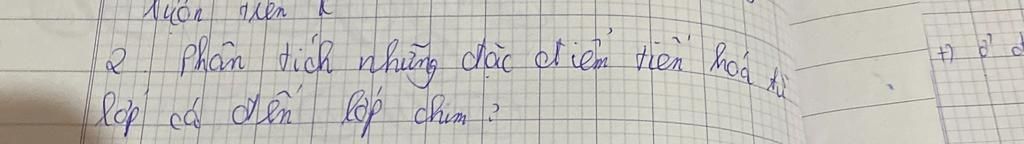 2. Phân tích những đặc điểm tiến hoá từ
lớp cá đến lớp chim?